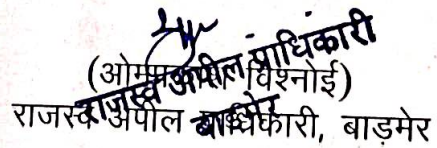 राजस्व अपील प्राधिकारी
बाड़मेर
(ओमप्रकाश विश्नोई)
राजस्व अपील प्राधिकारी, बाड़मेर